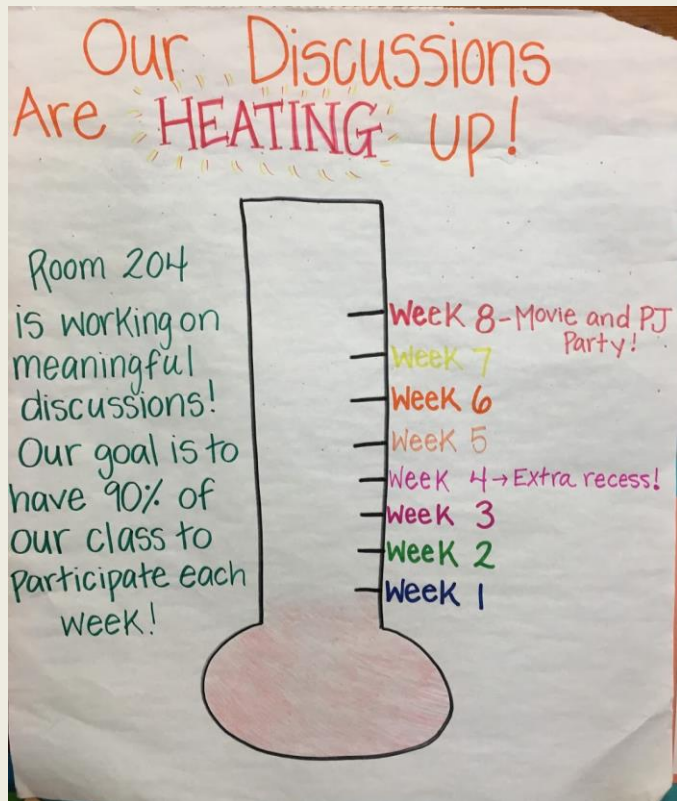 Our Discussions
Are HEATING up!
Room 204
is working on
meaningful
discussions!
Our goal is to
have 90% of
our class to
Participate each
week!
Week 8-Movie and PJ
Party!
Week 7
Week 6
Week 5
Week 4→Extra recess!
Week 3
Week 2
Week 1